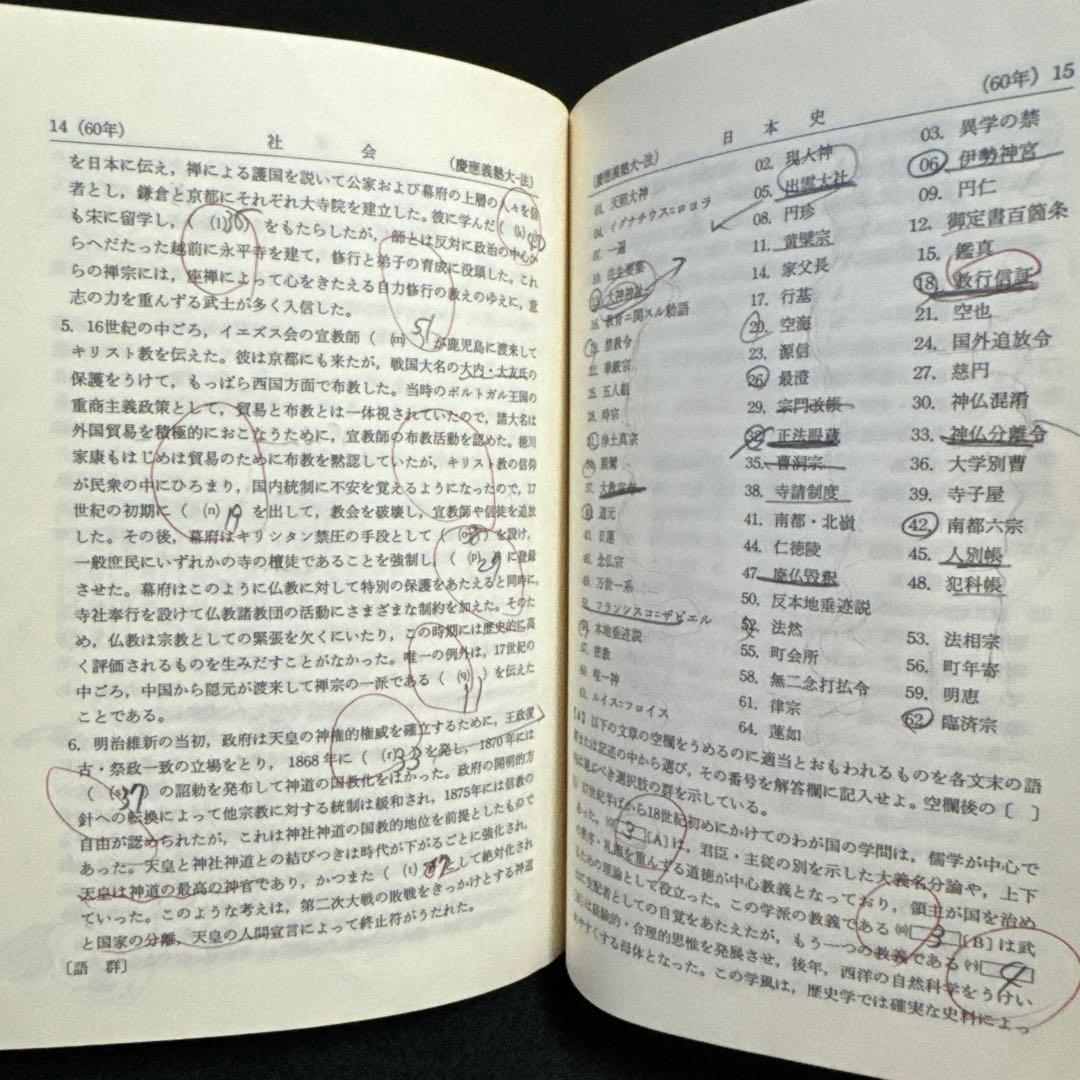 14 (60年)
社会
(慶應義塾大-法)
を日本に伝え，禅による護国を説いて公家および幕府の上層の人々を信
者とし，鎌倉と京都にそれぞれ大寺院を建立した。彼に学んだ( (k)
も宋に留学し，( (l)36 )をもたらしたが，師とは反対に政治の中心か
らへだたった越前に永平寺を建て，修行と弟子の育成に没頭した。これ
らの禅宗には，座禅によって心をきたえる自力修行の教えのゆえに，意
志の力を重んずる武士が多く入信した。
5. 16世紀の中ごろ，イエズス会の宣教師( (m) 51 )が鹿児島に渡来して
キリスト教を伝えた。彼は京都にも来たが，戦国大名の大内・太友氏の
保護をうけて，もっぱら西国方面で布教した。当時のポルトガル王国の
重商主義政策として，貿易と布教とは一体視されていたので，諸大名は
外国貿易を積極的におこなうために，宣教師の布教活動を認めた。徳川
家康もはじめは貿易のために布教を黙認していたが，キリスト教の信仰
が民衆の中にひろまり，国内統制に不安を覚えるようになったので，17
世紀の初期に( (n) 19 )を出して，教会を破壊し，宣教師や信徒を追放
した。その後，幕府はキリシタン禁圧の手段として( )を設け，
一般庶民にいずれかの寺の檀徒であることを強制し，( (p)29 )に登録
させた。幕府はこのように仏教に対して特別の保護をあたえると同時に，
寺社奉行を設けて仏教諸教団の活動にさまざまな制約を加えた。そのた
め，仏教は宗教としての緊張を欠くにいたり，この時期には歴史的に高
く評価されるものを生みだすことがなかった。唯一の例外は，17世紀の
中ごろ，中国から隠元が渡来して禅宗の一派である( (q) 11 )を伝えた
ことである。
6. 明治維新の当初，政府は天皇の神権的権威を確立するために，王政復
古・祭政一致の立場をとり，1868年に( (r)33 )を発し，1870年には
( (s)37 )の詔勅を発布して神道の国教化をはかった。政府の開明的方
針への転換によって他宗教に対する統制は緩和され，1875年には信教の
自由が認められたが，これは神社神道の国教的地位を前提としたもので
あった。天皇と神社神道との結びつきは時代が下がるごとに強化され，
天皇は神道の最高の神官であり，かつまた( (t) )として絶対化され
ていった。このような考えは，第二次大戦の敗戦をきっかけとする神道
と国家の分離，天皇の人間宣言によって終止符がうたれた。
〔語 群〕
(60年) 15
日本史
(慶應義塾大-法)
01. 天照大神 02. 現人神 03. 異学の禁
04. イグナチウス=ロヨラ 05. 出雲大社 06. 伊勢神宮
07. 一遍 08. 円珍 09. 円仁
10. 往生要集 11. 黄檗宗 12. 御定書百箇条
13. 大神神社 14. 家父長 15. 鑑真
16. 教育ニ関スル勅語 17. 行基 18. 教行信証
19. 禁教令 20. 空海 21. 空也
22. 華厳宗 23. 源信 24. 国外追放令
25. 五人組 26. 最澄 27. 慈円
28. 時宗 29. 宗門改帳 30. 神仏混淆
31. 浄土真宗 32. 正法眼蔵 33. 神仏分離令
34. 親鸞 35. 曹洞宗 36. 大学別曹
37. 大教宣布 38. 寺請制度 39. 寺子屋
40. 道元 41. 南都・北嶺 42. 南都六宗
43. 日蓮 44. 仁徳陵 45. 人別帳
46. 念仏宗 47. 廃仏毀釈 48. 犯科帳
49. 万世一系 50. 反本地垂迹説
51. フランシスコ=ザビエル 52. 法然 53. 法相宗
54. 本地垂迹説 55. 町会所 56. 町年寄
57. 密教 58. 無二念打払令 59. 明恵
60. 唯一神 61. 律宗 62. 臨済宗
63. ルイス=フロイス 64. 蓮如
以下の文章の空欄をうめるのに適当とおもわれるものを各文末の語
または記述の中から選び，その番号を解答欄に記入せよ。空欄後の〔 〕
ぶべき選択肢の群を示している。
17世紀半ばから18世紀初めにかけてのわが国の学問は，儒学が中心で
あった。 3 [A]は，君臣・主従の別を示した大義名分論や，上下
の秩序・礼節を重んずる道徳が中心教義となっており，領主が国を治め
るための理論として役立った。この学派の教義である 3 [B]は武
支配者としての自覚をあたえたが，もう一つの教義である 4
[B]は経験的・合理的思惟を発展させ，後年，西洋の自然科学をうけい
れやすくする母体となった。この学風は，歴史学では確実な史料によっ